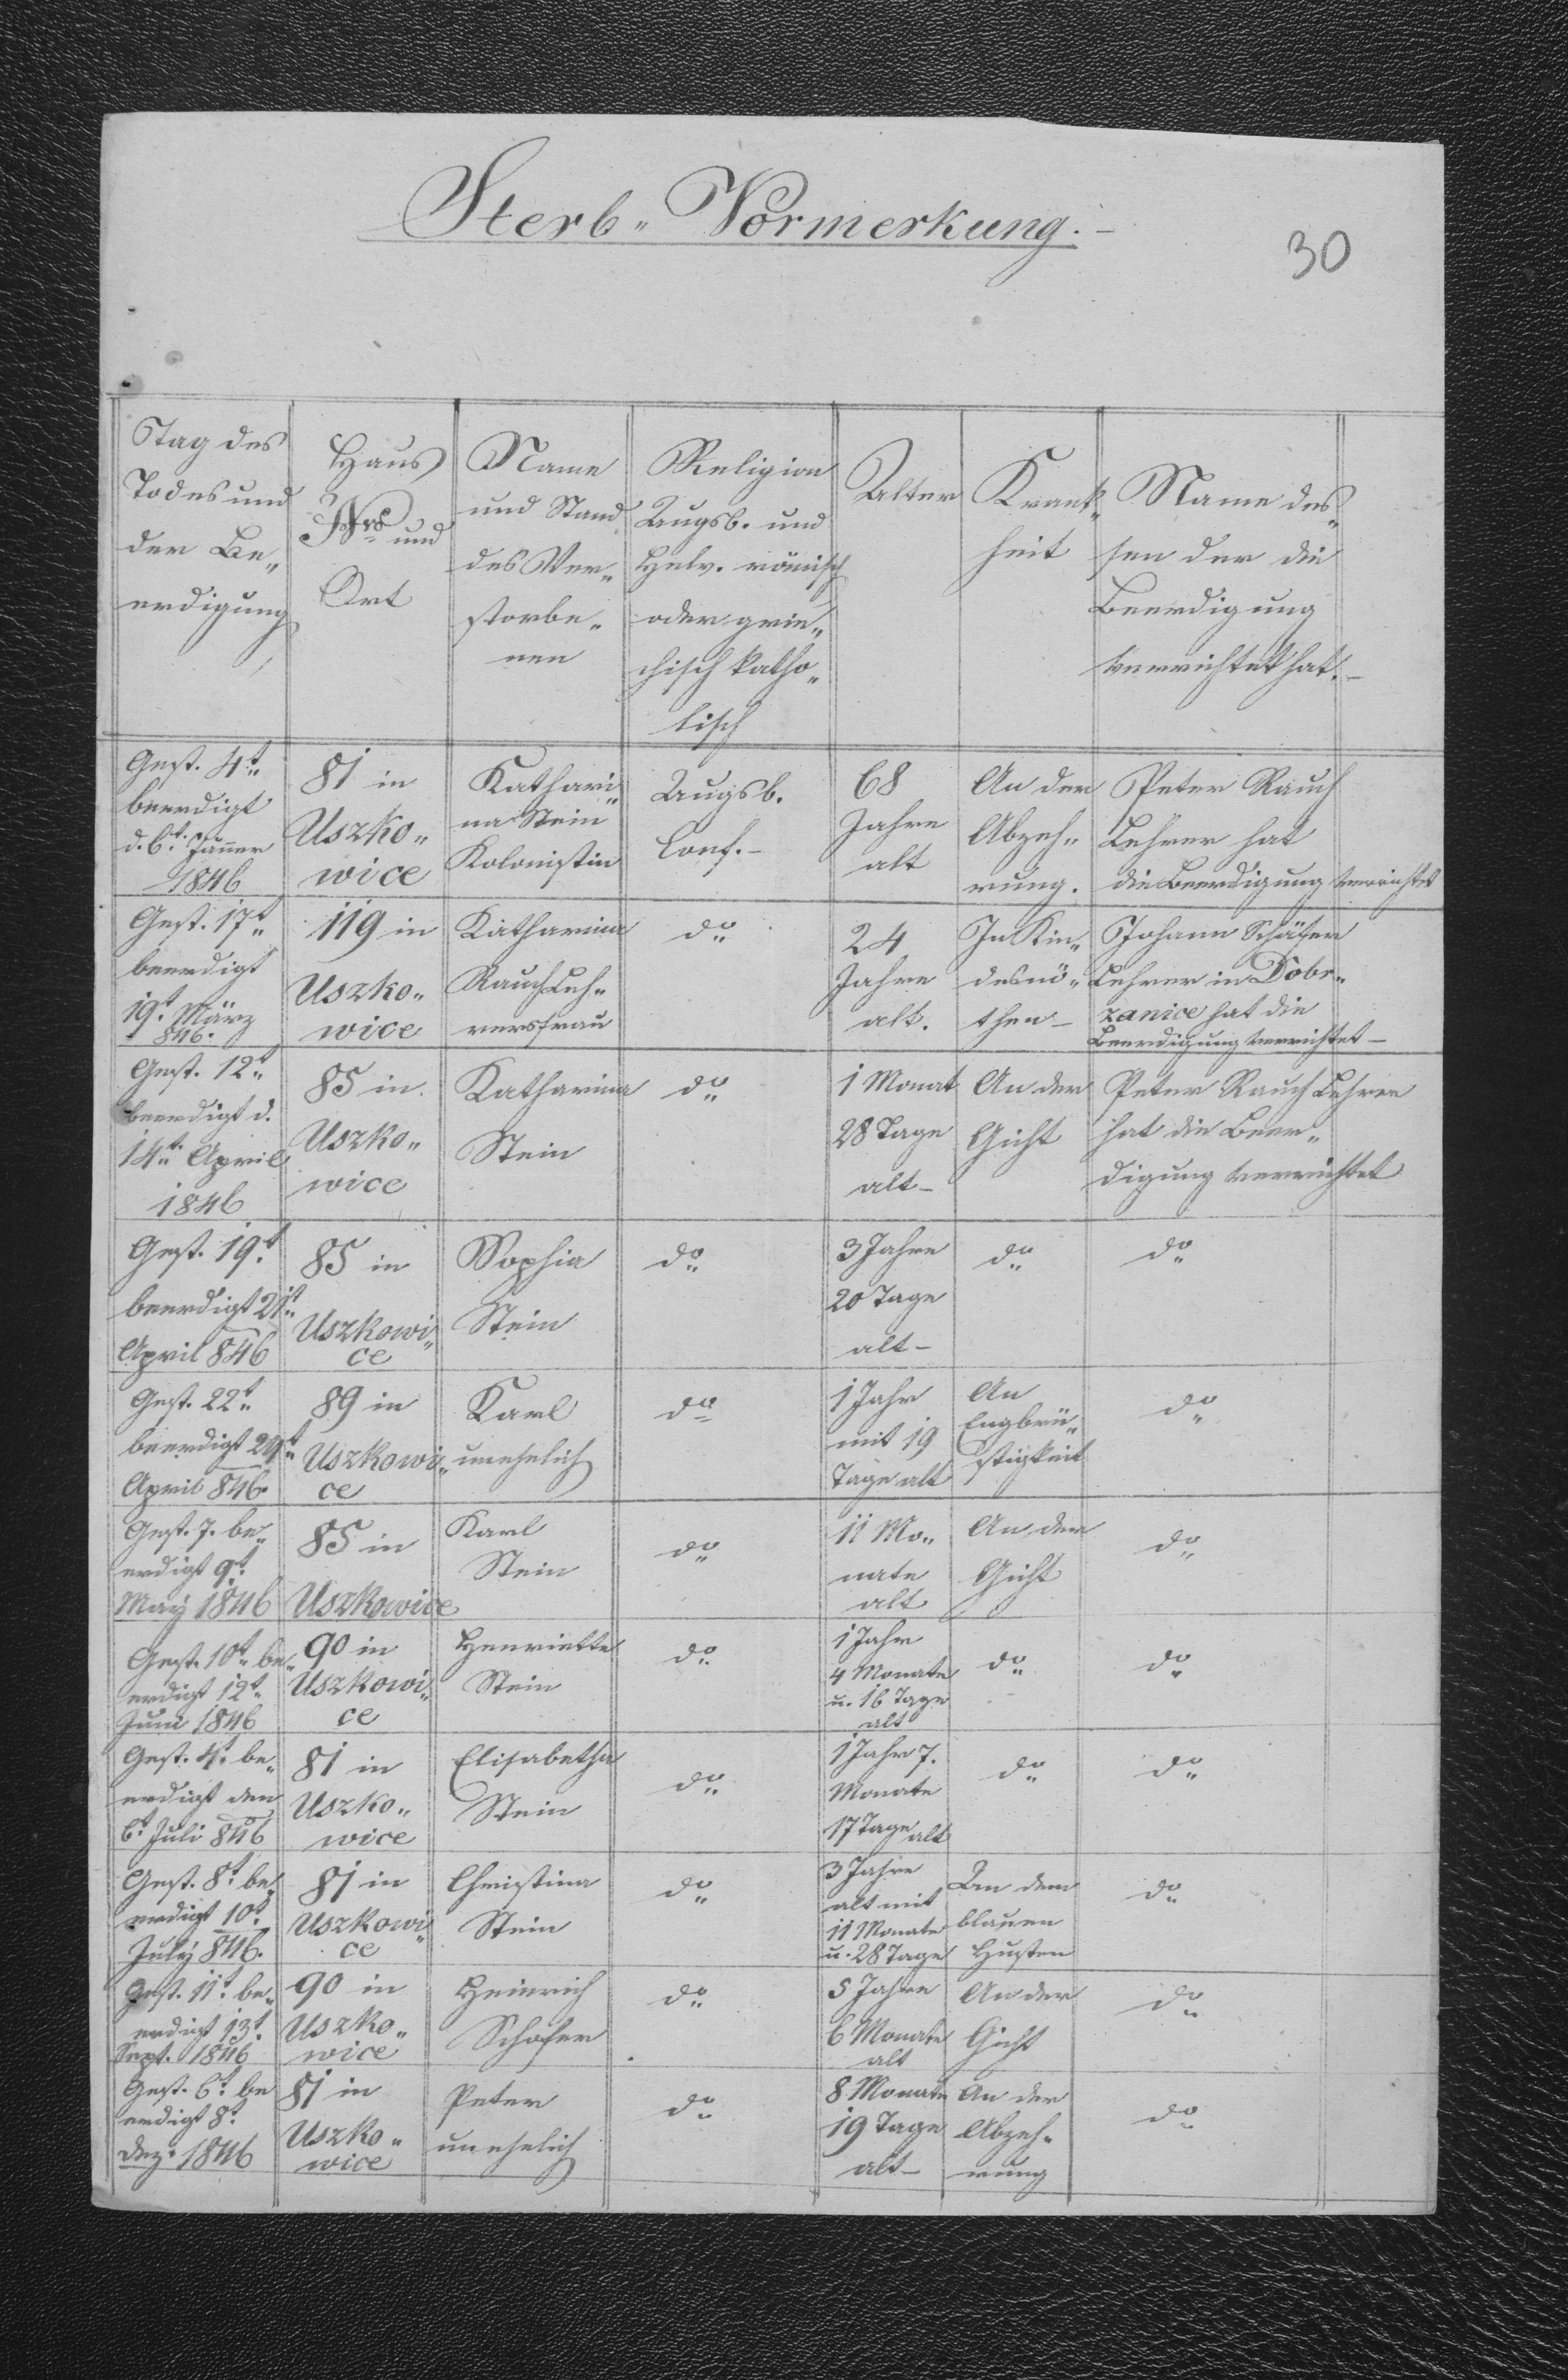 Sterb„ Vormerkung.–
30
Tag des
Todes und
der Be„
erdigung
Haus
Nro und
Ort
Name
und Stand
des Ver„
storbe„
nen
Religion
Augsb. und
Helv. römisch
oder grie„
chisch katho„
lisch
Alter
Krank„
heit
Name des„
sen der die
Beerdigung
verrichtet hat.–
Gest. 4t.
beerdigt
d. 6t. Jänner
1846
81 in
Uszko„
wice
Kathari„
na Stein
Kolonistin
Augsb.
Conf.–
68
Jahre
alt
An der
Abzeh„
rung.
Peter Rauch
Lehrer hat
die Beerdigung verrichtet
Gest. 17t.
beerdigt
19t. März
846.
119 in
Uszko„
wice
Katharina
Rauch Leh„
rersfrau
do
24
Jahre
alt.
In Kin„
desnö„
then–
Johann Schäfer
Lehrer in Dobr„
zanice hat die
Beerdigung verrichtet–
Gest. 12t.
beerdigt d.
14t. April
1846
85 in
Uszko„
wice
Katharina
Stein
do
1 Monat
28 Tage
alt–
An der
Gicht
Peter Rauch Lehrer
hat die Beer„
digung verrichtet
Gest. 19t.
beerdigt 21t.
April 846
85 in
Uszkowi„
ce
Sophia
Stein
do
3 Jahre
20 Tage
alt–
do
do
Gest. 22t.
beerdigt 24t.
April 846.
89 in
Uszkowi„
ce
Karl
unehelich
do
1 Jahr
mit 19
Tage alt
An
Engbrü„
stigkeit
do
Gest. 7. be„
erdigt 9t.
May 1846
85 in
Uszkowice
Karl
Stein
do
11 Mo„
nate
alt
An der
Gicht
do
Gest. 10t. be„
erdigt 12t.
Juni 1846
90 in
Uszkowi„
ce
Henriette
Stein
do
1 Jahr
4 Monate
u. 16 Tage
alt
do
do
Gest. 4t. be„
erdigt den
6t. Juli 846
81 in
Uszko„
wice
Elisabetha
Stein
do
1 Jahr 7.
Monate
17 Tage alt
do
do
Gest. 8t. be„
erdigt 10t.
July 846.
81 in
Uszkowi„
ce
Christina
Stein
do
3 Jahre
alt mit
11 Monate
u. 28 Tage
An dem
blauen
Husten
do
Gest. 11t. be„
erdigt 13t.
Sept. 1846
90 in
Uszko„
wice
Heinrich
Schafer
do
5 Jahre
6 Monate
alt
An der
Gicht
do
Gest. 6t. be
erdigt 8t.
Dez. 1846
81 in
Uszko„
wice
Peter
unehelich
do
8 Monate
19 Tage
alt–
An der
Abzeh„
rung
do